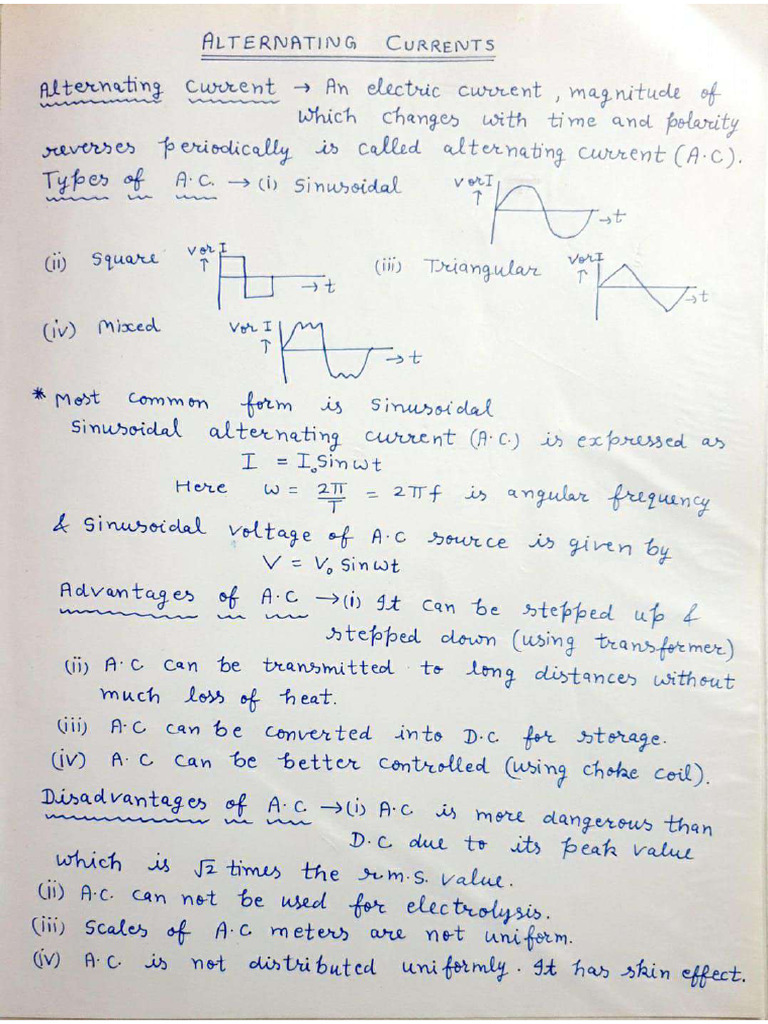 ALTERNATING CURRENTS
Alternating Current → An electric current, magnitude of
which changes with time and polarity
reverses periodically is called alternating current (A.C).
Types of A.C. → (i) Sinusoidal V or I ↑ → t
(ii) Square V or I ↑ → t (iii) Triangular V or I ↑ → t
(iv) Mixed V or I ↑ → t
* Most common form is Sinusoidal
Sinusoidal alternating current (A.C.) is expressed as
I = I₀ Sin ωt
Here ω = 2π/T = 2πf is angular frequency
& Sinusoidal voltage of A.C source is given by
V = V₀ Sin ωt
Advantages of A.C → (i) It can be stepped up &
stepped down (using transformer)
(ii) A.C can be transmitted to long distances without
much loss of heat.
(iii) A.C can be converted into D.C for storage.
(iv) A.C can be better controlled (using choke coil).
Disadvantages of A.C. → (i) A.C is more dangerous than
D.C due to its peak value
which is √2 times the r.m.s. value.
(ii) A.C. can not be used for electrolysis.
(iii) Scales of A.C meters are not uniform.
(iv) A.C. is not distributed uniformly. It has skin effect.